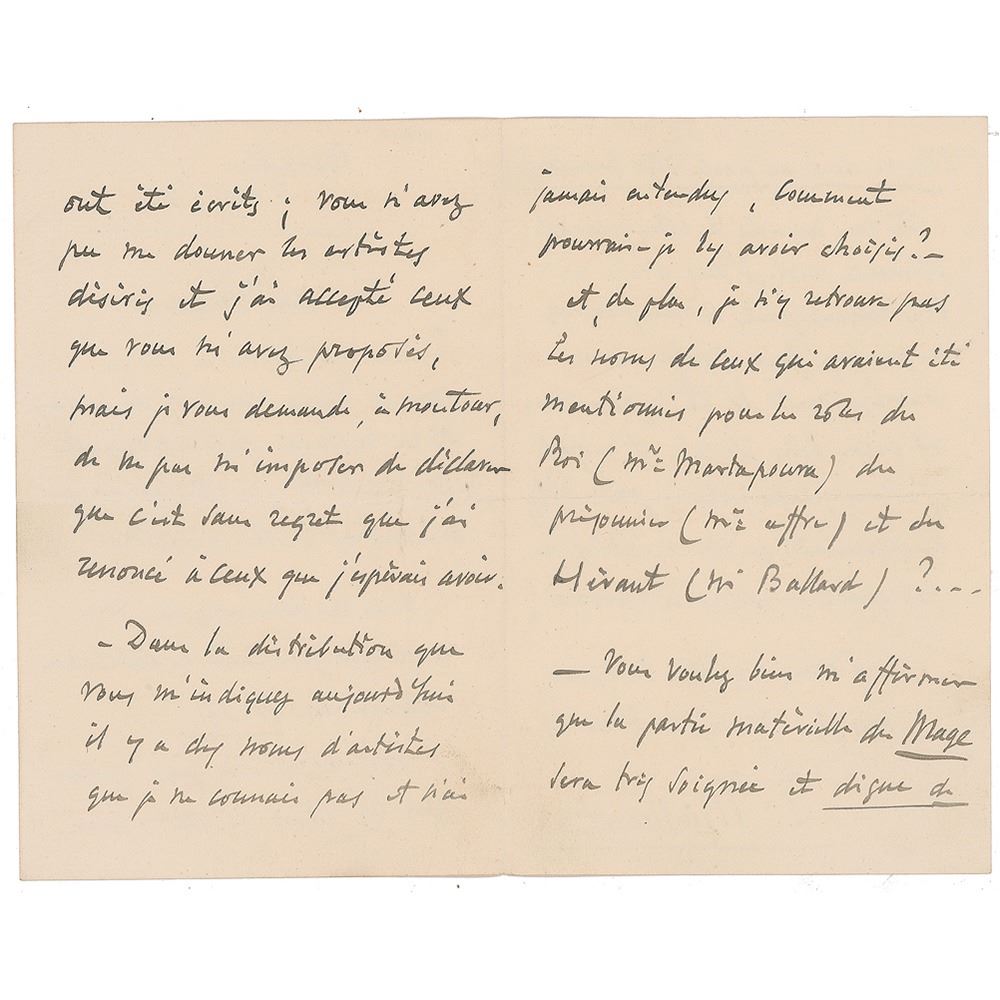 ont été écrits ; vous n'avez
pu me donner les artistes
désirés et j'ai accepté ceux
que vous m'avez proposés,
mais je vous demande, à mon tour,
de ne pas m'imposer de déclarer
que c'est sans regret que j'ai
renoncé à ceux que j'espérais avoir.
- Dans la distribution que
vous m'indiquez aujourd'hui
il y a des noms d'artistes
que je ne connais pas et n'ai
jamais entendus, comment
pourrais-je les avoir choisis ? -
et, de plus, je n'y retrouve pas
les noms de ceux qui avaient été
mentionnés pour les rôles du
Roi (Mr Martapoura) du
prisonnier (Mr Affre) et du
Hérault (Mr Ballard) ? ...
- Vous voulez bien m'affirmer
que la partie matérielle du Mage
sera très soignée et digne de